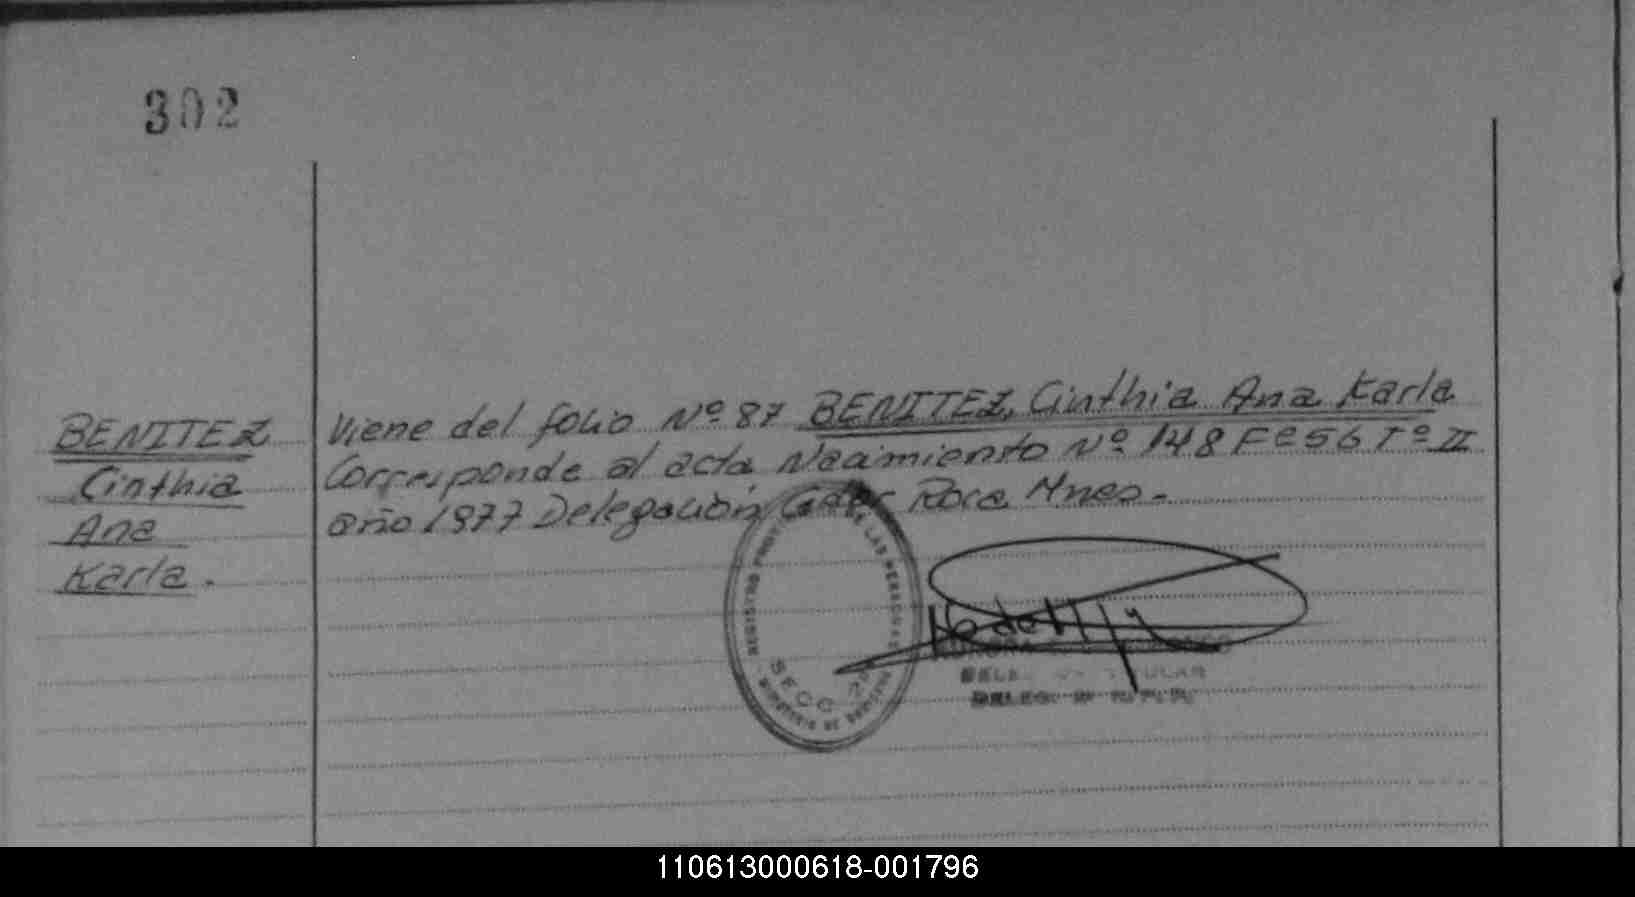 302
BENITEZ
Cinthia
Ana
Karla.
Viene del folio Nº 87 BENITEZ, Cinthia Ana Karla
Corresponde al acta Nacimiento Nº 148 Fº 56 Tº II
año 1977 Delegación Gdor Roca Mnes.-
REGISTRO DE LAS PERSONAS
SECC.
110613000618-001796